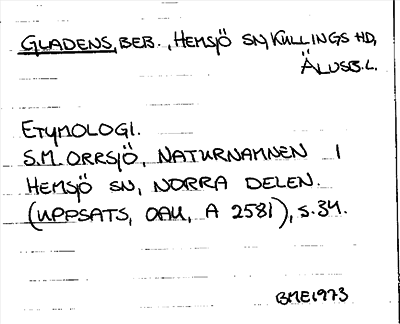 GLADENS, BEB., HEMSJÖ SN, KULLINGS HD,
ÄLVSB.L.
ETYMOLOGI.
S.M. ORRSJÖ, NATURNAMNEN I
HEMSJÖ SN, NORRA DELEN.
(UPPSATS, OAU, A 2581), S.34.
BME1973